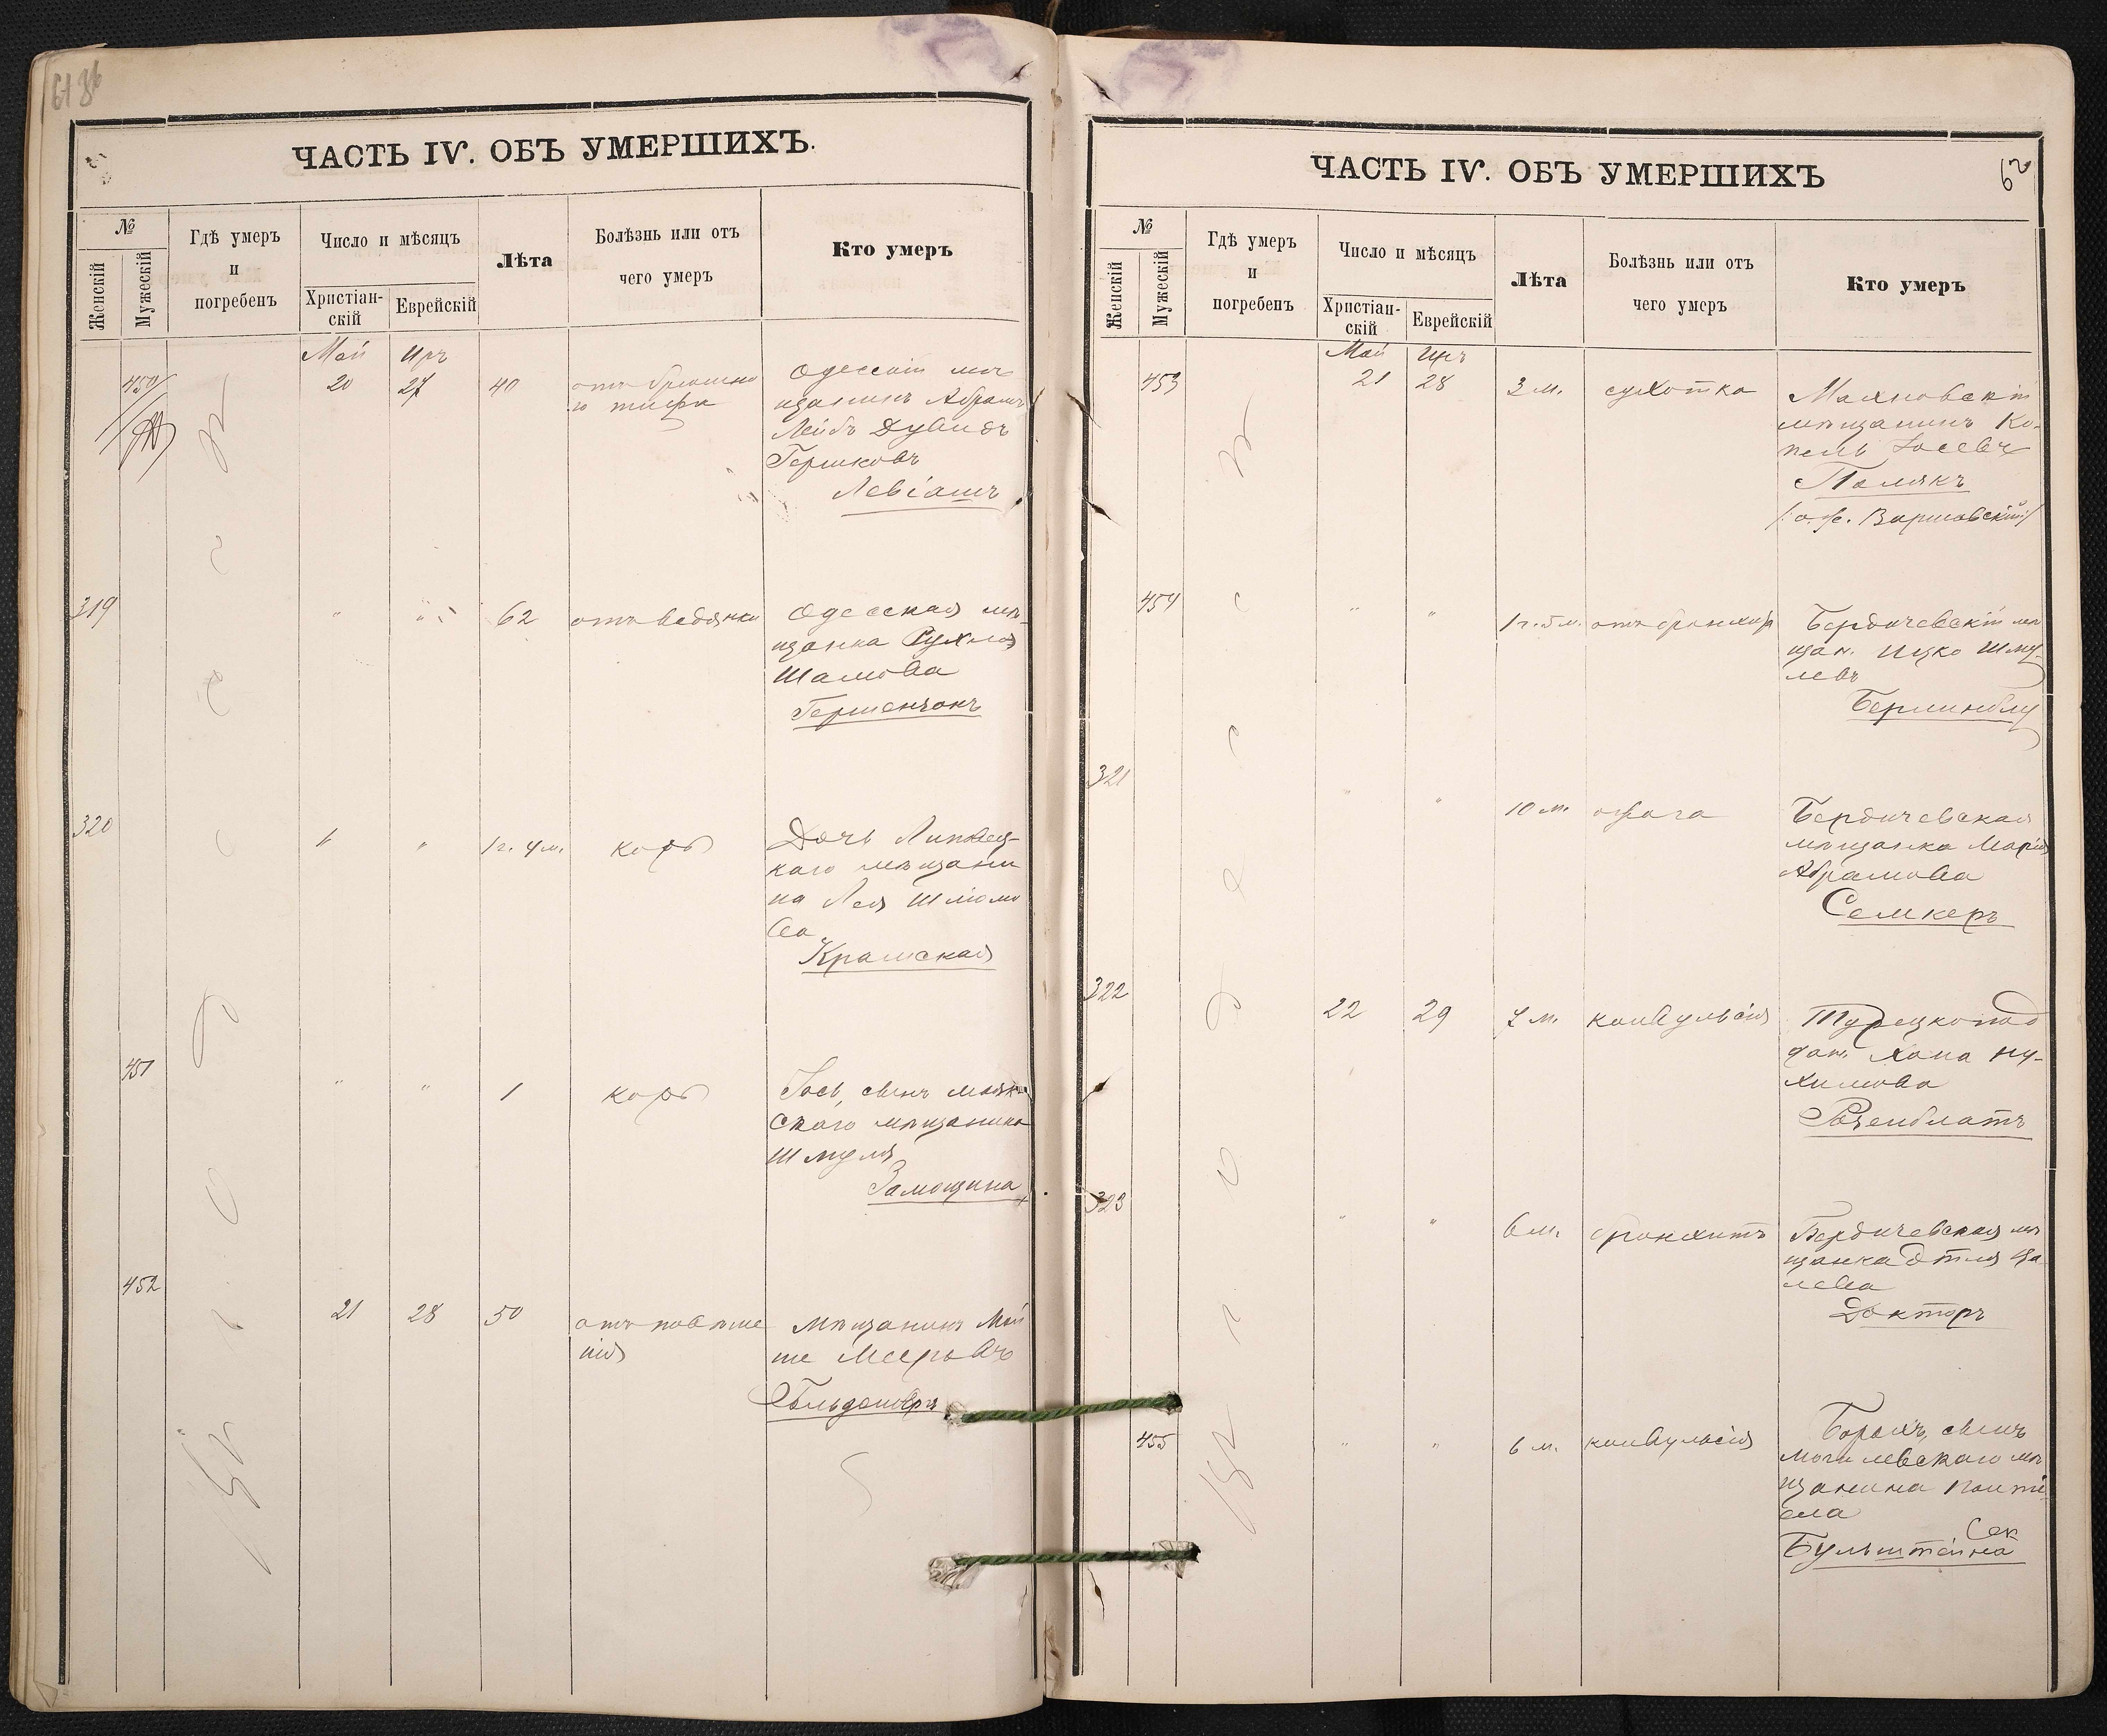 61 об
ЧАСТЬ IV. ОБЪ УМЕРШИХЪ.
№
Женскій
Мужескій
Гдѣ умеръ
и
погребенъ
Число и мѣсяцъ
Христіан-
скій
Еврейскій
Лѣта
Болѣзнь или отъ
чего умеръ
Кто умеръ
Май Иръ
450 20 27 40
отъ брюшна
го тифа
Одесскій мѣ
щанинъ Абрамъ
Лейбъ Дувидъ
Гершковъ
Левіатъ
319 " " 62
отъ водянки
Одесская мѣ
щанка Рухля
Шамова
Гершензонъ
320 " " 1 г. 4 м. корь
Дочь Липовец-
каго мѣщани
на Лея Шліомо
ва
Крамская
451 " " 1 корь
Іось, сынъ
скаго мѣщанина
Шмуля
Замощина
452 21 28 50
отъ повѣше
нія
Мѣщанинъ Мой
ше Мееровъ
Гольденберъ
Въ г. Одессѣ
ЧАСТЬ IV. ОБЪ УМЕРШИХЪ
62
№
Женскій
Мужескій
Гдѣ умеръ
и
погребенъ
Число и мѣсяцъ
Христіан-
скій
Еврейскій
Лѣта
Болѣзнь или отъ
чего умеръ
Кто умеръ
Май Иръ
453 21 28 3 м. сухотка
Махновскій
мѣщанинъ Ко-
пель Іосевъ
Полякъ
/: о. же. Варшавскій :/
454 " " 1 г. 5 м.
Бердичевскій мѣ
щан. Ицко Шму-
левъ
Берлинблу
321 " " 10 м. ожога
Бердичевская
мѣщанка Марія
Абрамова
Семкеръ
322 22 29 7 м. конвульсія
Турецкопод
дан. Хана Ну-
химова
Розенблатъ
323 " " 6 м. бронхитъ
Бердичевская мѣ
щанка Этля Ца
лева
Докторъ
455 " " 6 м. конвульсія
Борохъ, сынъ
Могилевскаго мѣ
щанина Пинті
ела
Сек
Бульштейна